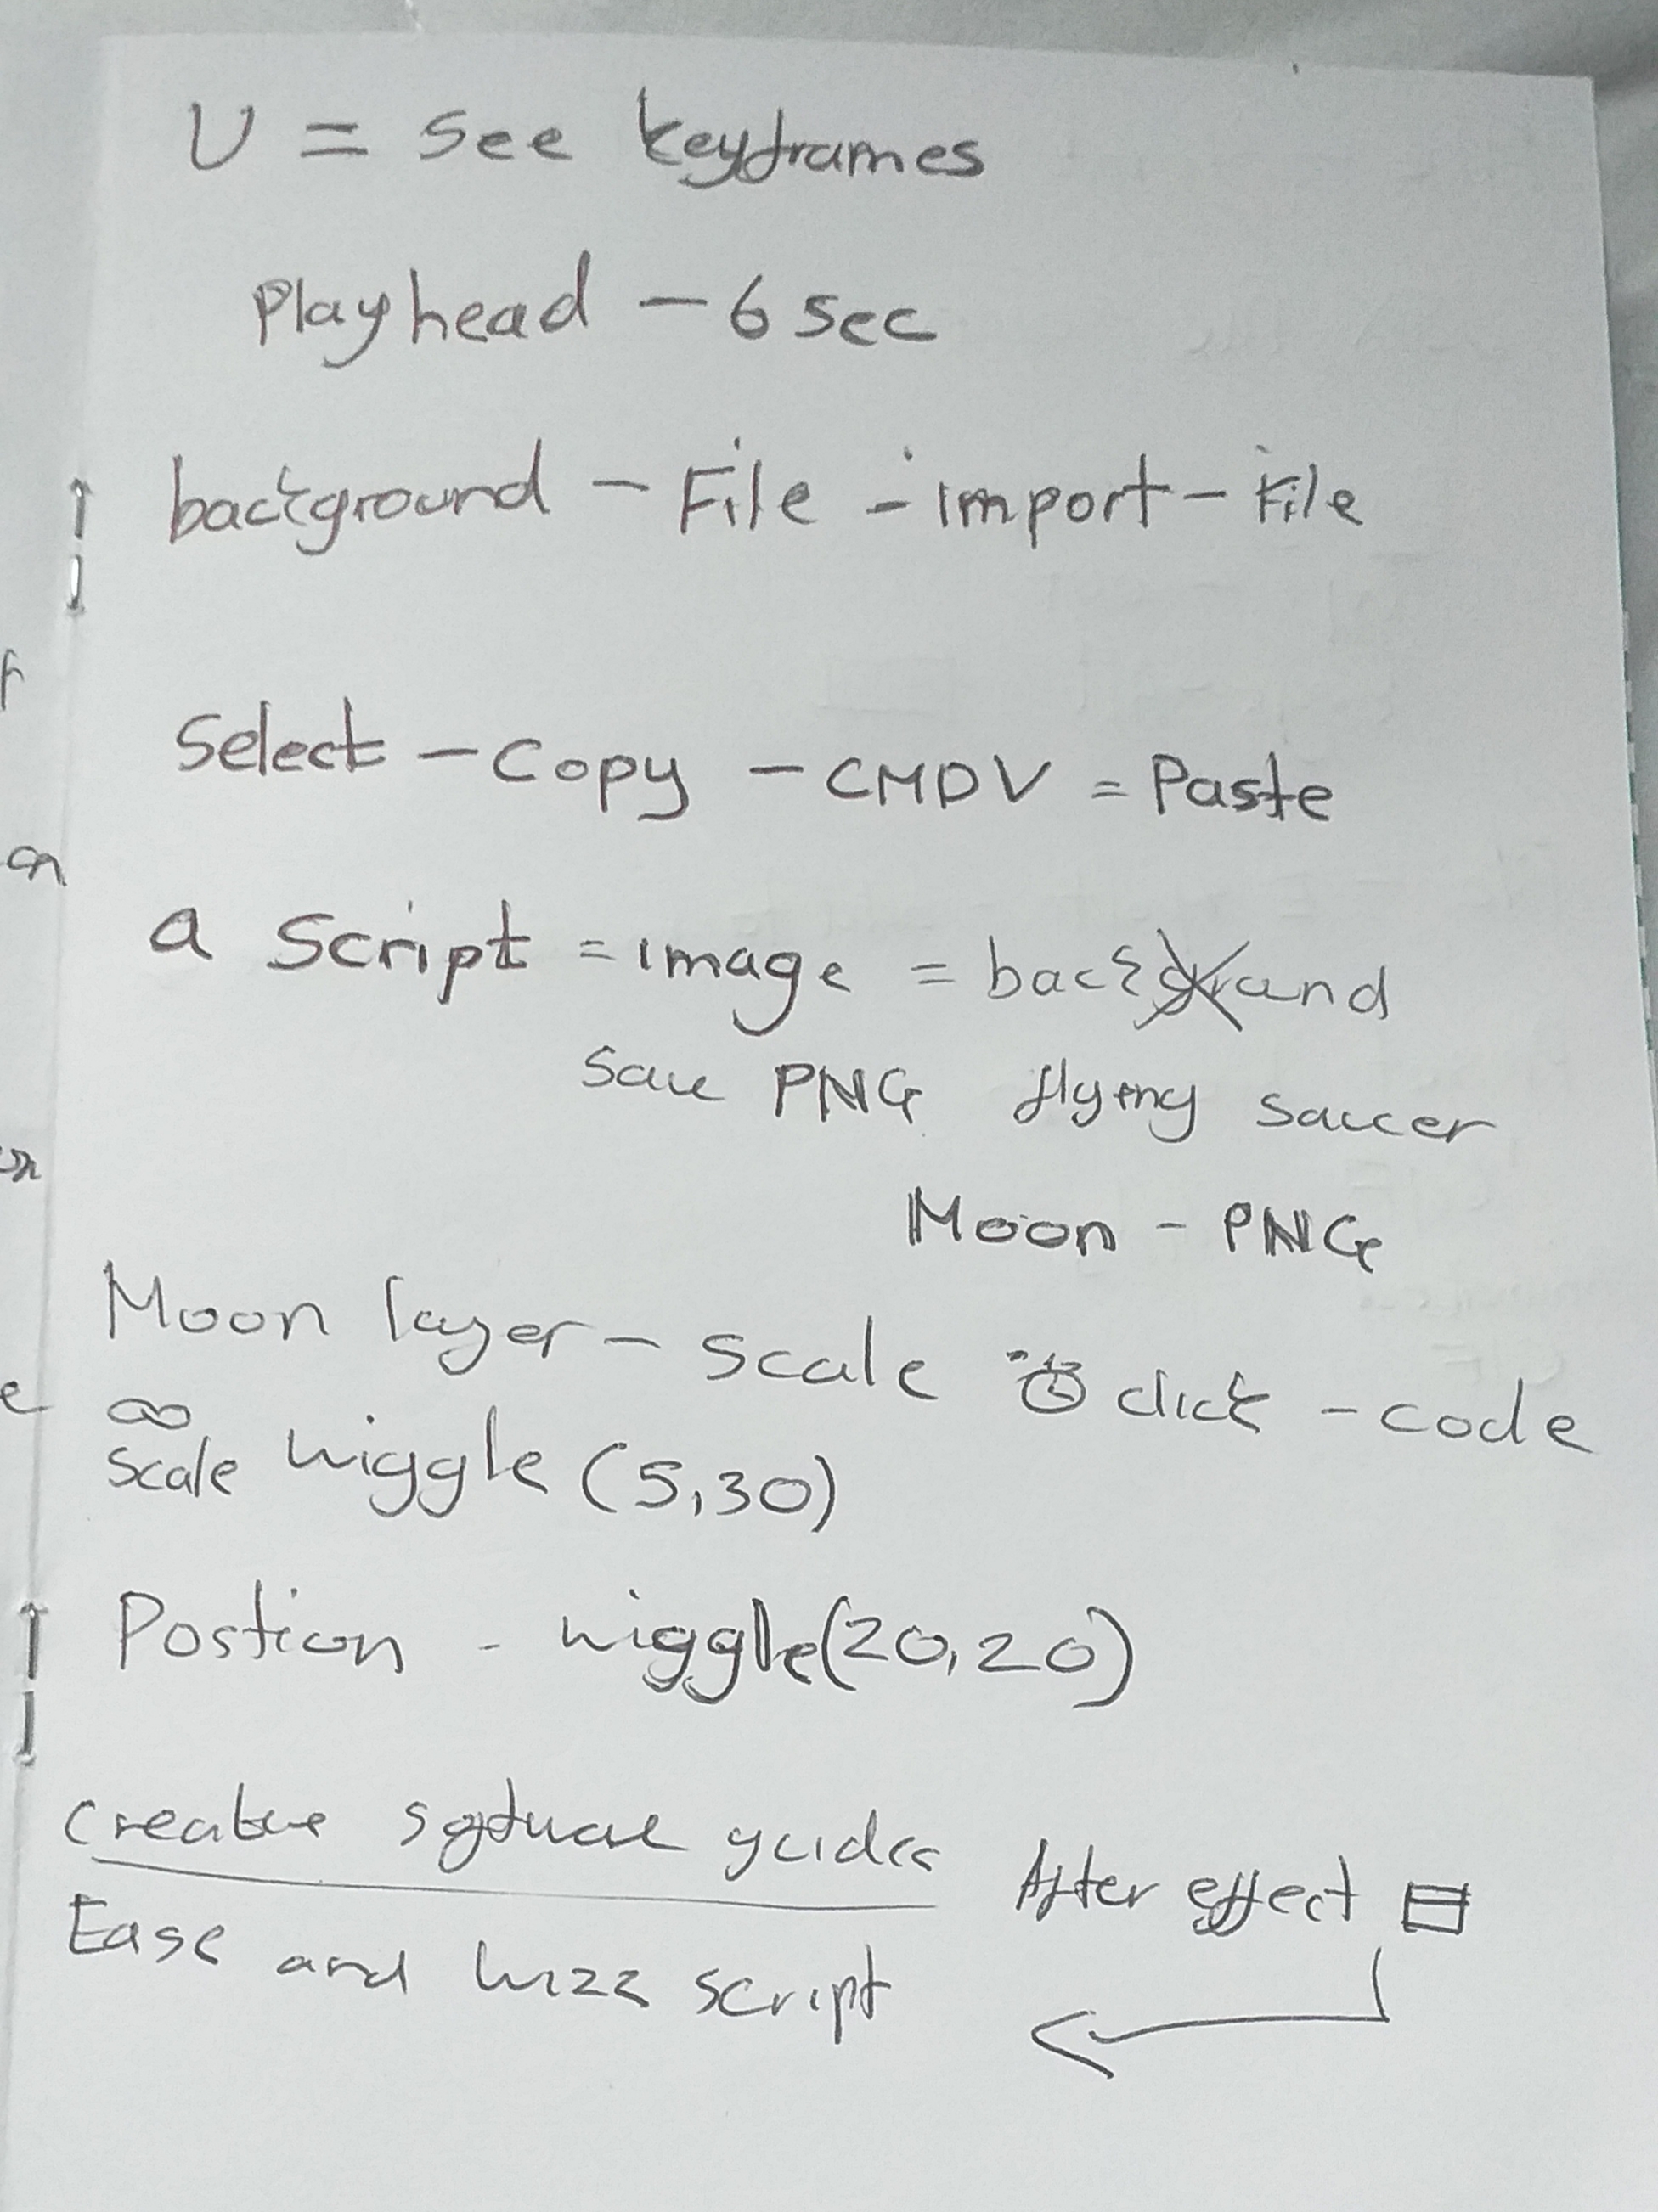 U = See keyframes
Playhead - 6 sec
background - File - import - File
Select - Copy - CMDV = Paste
a Script = image = backgrand
Save PNG flying saucer
Moon - PNG
Moon layer - scale click - code
∞
scale wiggle (5,30)
Postion - wiggle(20,20)
creative guides
After effect
Ease and wizz script